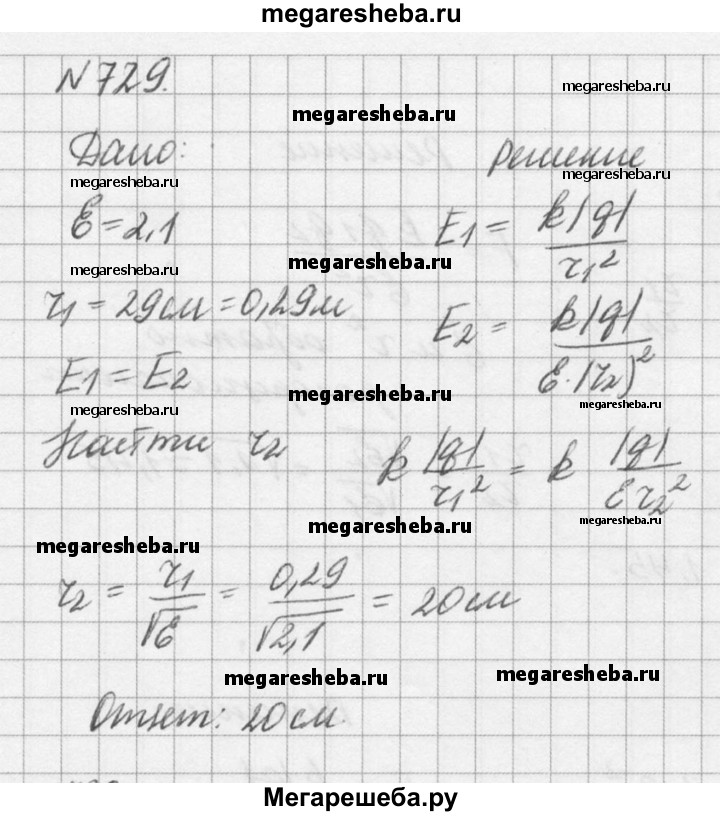 megaresheba.ru
№ 729.
megaresheba.ru
megaresheba.ru
Дано:
Решение
megaresheba.ru
megaresheba.ru
Ɛ = 2,1
E1 = k|q| / r1²
megaresheba.ru
megaresheba.ru
r1 = 29 см = 0,29 м
E2 = k|q| / Ɛ·(r2)²
E1 = E2
megaresheba.ru
megaresheba.ru
megaresheba.ru
Найти r2
k |q| / r1² = k |q| / Ɛ r2²
megaresheba.ru
megaresheba.ru
megaresheba.ru
r2 = r1 / √Ɛ = 0,29 / √2,1 = 20 см
megaresheba.ru
megaresheba.ru
Ответ: 20 см.
Мегарешеба.ру